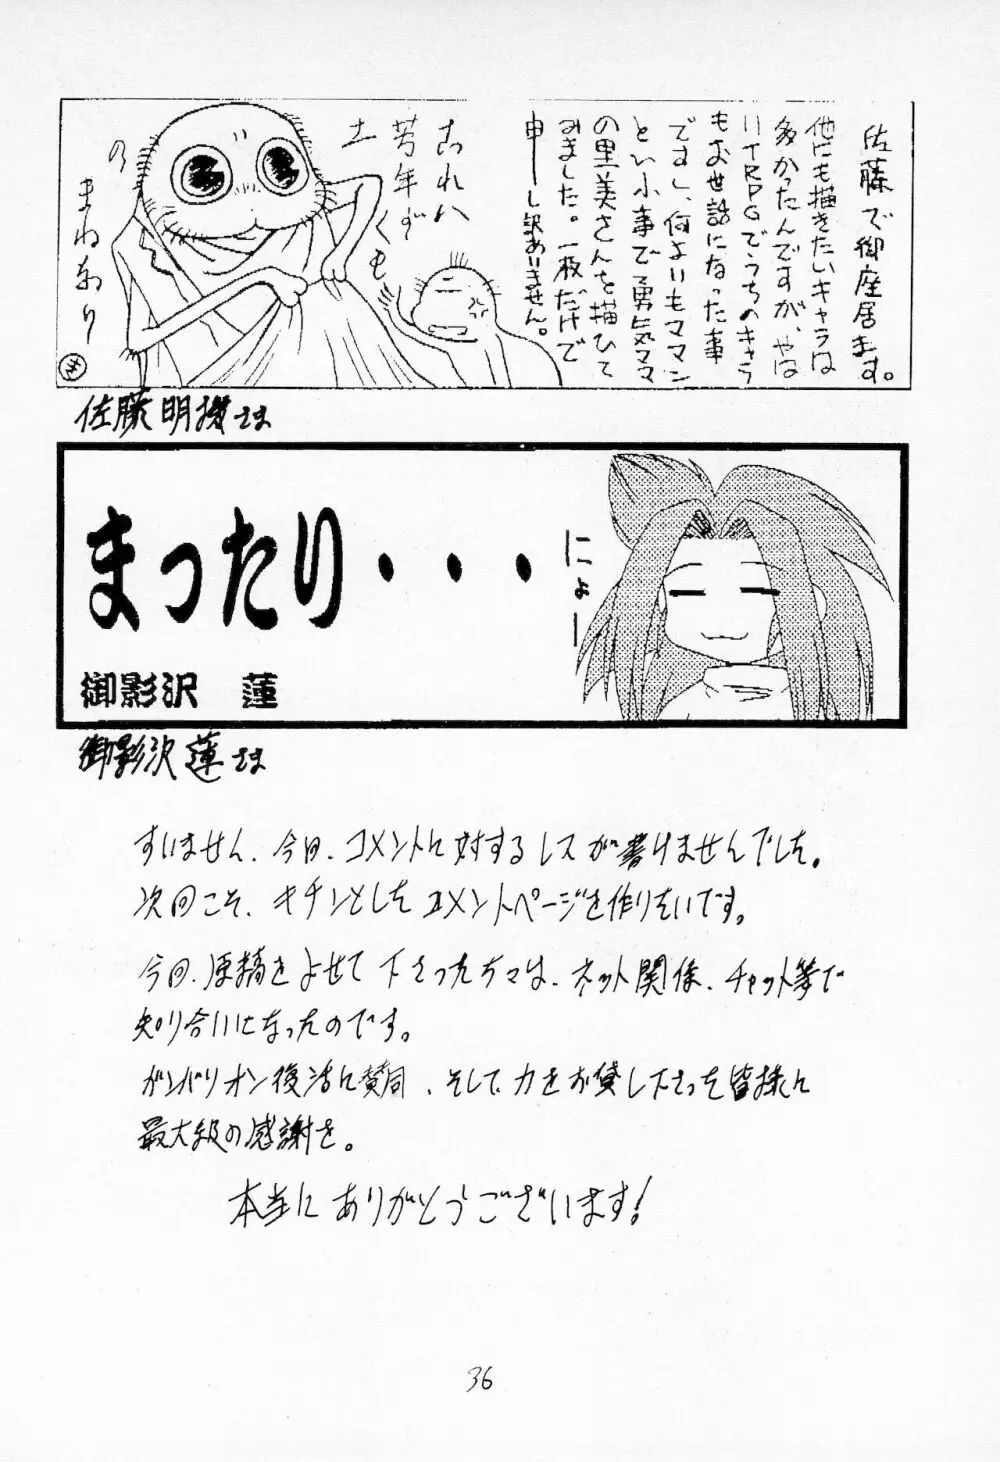 佐藤で御座居ます。
他にも描きたいキャラは
多かったんですが、やは
りTRPGでうちのキャラ
もお世話になった事
ですし、何よりもママン
という事で勇気ママ
の里美さんを描いて
みました。一枚だけで
申ーし訳ありません。
これは
若年ず
くも
土
の
まねあり
佐藤明機さま
まったり・・・
にょー
御影沢 蓮
御影沢蓮さま
すいません、今回、コメントに対するレスが書けませんでした。
次回こそ、キチンとしたコメントページを作りたいです。
今回、原稿をよせて下さった方々は、ネット関係、チャット等で
知り合いになったのです。
ガンバリオン復活に賛同、そして、力をお貸し下さった皆様に
最大級の感謝を。
本当にありがとうございます!
36